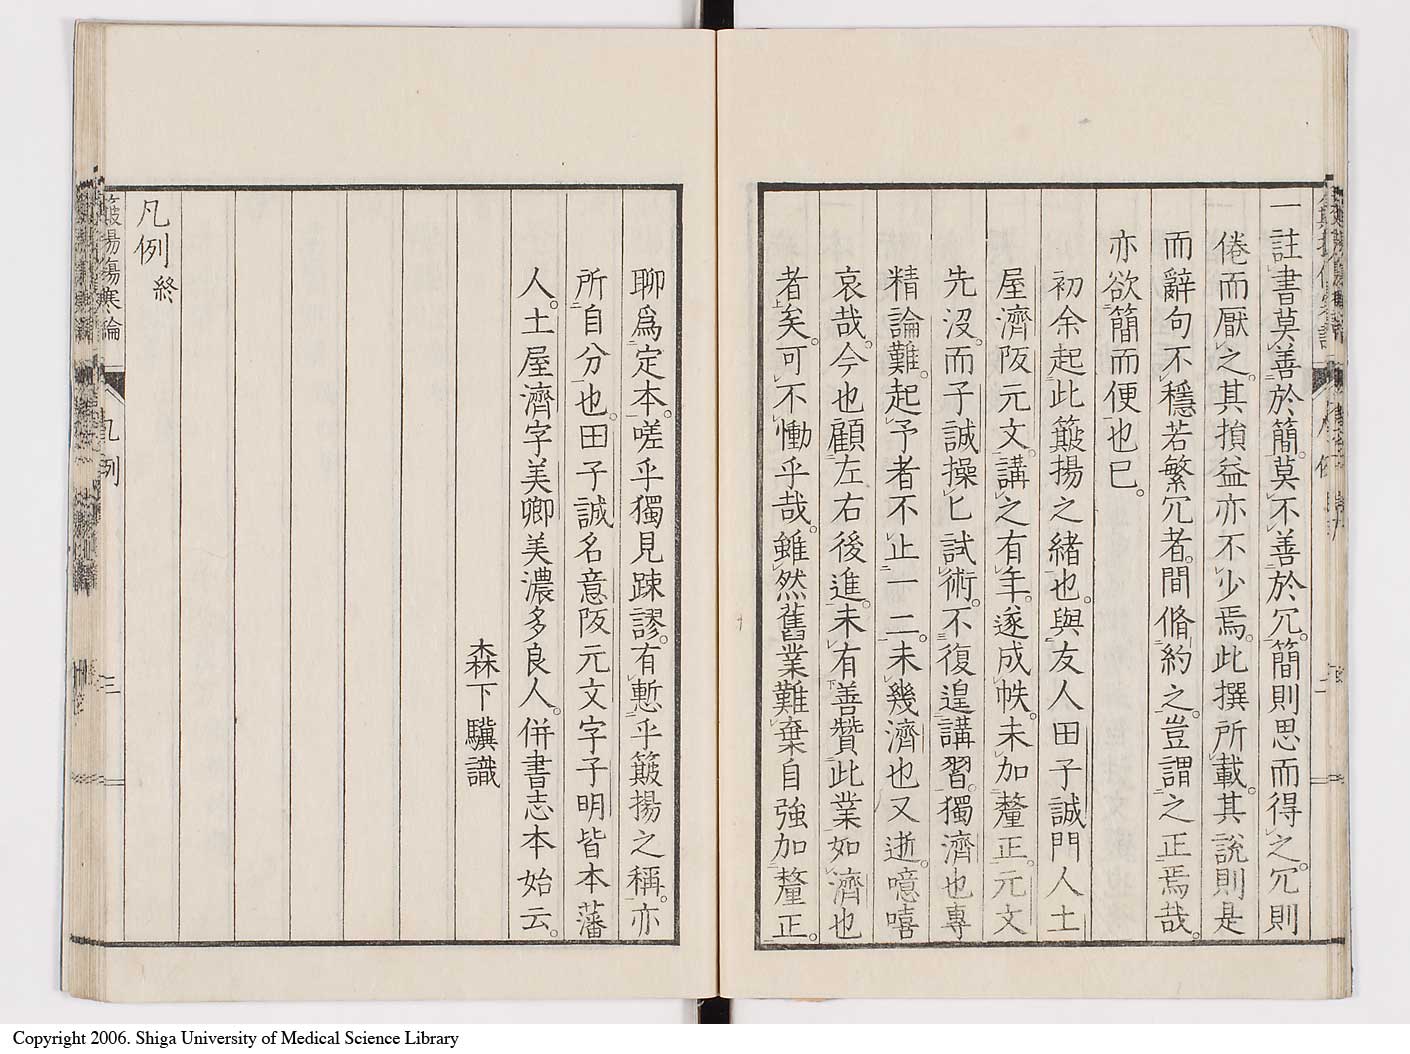 一註書莫善於簡。莫不善於冗。簡則思而得之。冗則
倦而厭之。其損益亦不少焉。此撰所載。其說則是
而辭句不穩若繁冗者。間脩約之。豈謂之正焉哉。
亦欲簡而便也已。
初余起此簸揚之緒也。與友人田子誠門人土
屋濟阪元文。講之有年。遂成帙。未加釐正。元文
先沒。而子誠操匕試術。不復遑講習。獨濟也專
精論難。起予者不止一二。未幾濟也又逝。噫嘻
哀哉。今也顧左右後進。未有善贊此業如濟也
者矣。可不慟乎哉。雖然舊業難棄自強加釐正。
聊爲定本。嗟乎獨見疎謬。有慙乎簸揚之稱。亦
所自分也。田子誠名意阪元文字子明皆本藩
人。土屋濟字美卿美濃多良人。併書志本始云。
森下驥識
凡例終
簸揚傷寒論
凡例
三
Copyright 2006. Shiga University of Medical Science Library